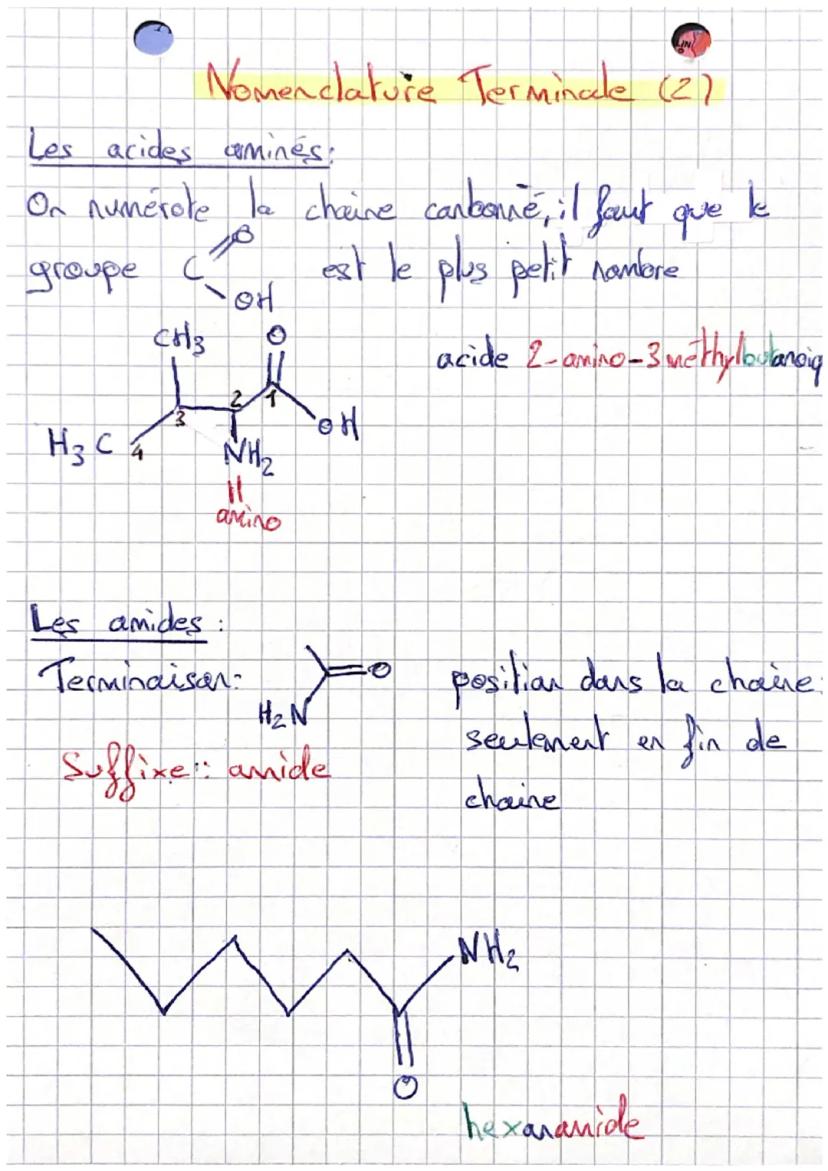 Nomenclature Terminale (2)
Les acides aminés:
On numérote la chaine carbonné, il faut que le
groupe C O OH est le plus petit nombre
CH3 O
acide 2-amino-3méthylbutanoiq
3 2 1 OH
H3C 4 NH2
amino
Les amides :
Terminaison: O position dans la chaine:
H2N seulement en fin de
Suffixe: amide
chaine
NH2
O
hexanamide